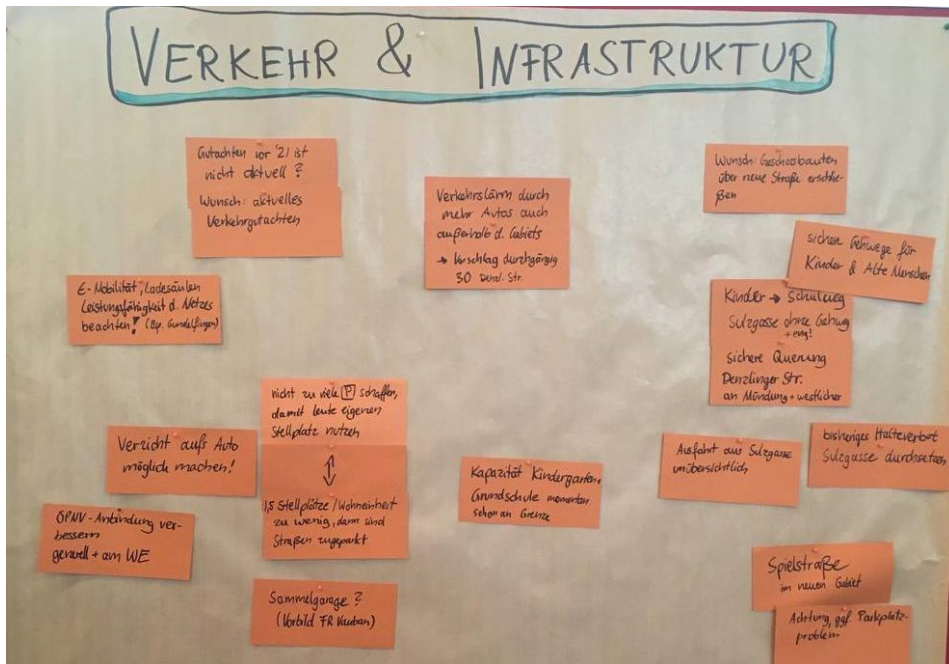 VERKEHR & INFRASTRUKTUR
Gutachten vor '21 ist
nicht aktuell?
Wunsch: aktuelles
Verkehrgutachten
Verkehrslärm durch
mehr Autos auch
außerhalb d. Gebiets
→ Vorschlag durchgängig
30 Denzl. Str.
Wunsch: Geschossbauten
über neue Straße erschlie-
ßen
sichere Gehwege für
Kinder & Alte Menschen
E-Mobilität, Ladesäulen
Leistungsfähigkeit d. Netzes
beachten! (Bp. Gundelfingen)
Kinder → Schulweg
Sulzgasse ohne Gehweg
+ eng!
sichere Querung
Denzlinger Str.
an Mündung + westlicher
nicht zu viele P schaffen,
damit Leute eigenen
Stellplatz nutzen
1,5 Stellplätze/Wohneinheit
zu wenig, dann sind
Straßen zugeparkt
Verzicht aufs Auto
möglich machen!
Kapazität Kindergarten +
Grundschule momentan
schon an Grenze
Ausfahrt aus Sulzgasse
unübersichtlich
bisheriges Halteverbot
Sulzgasse durchsetzen
ÖPNV-Anbindung ver-
bessern
generell + am WE
Sammelgarage?
(Vorbild FR Vauban)
Spielstraße
im neuen Gebiet
Achtung, ggf. Parkplatz-
problem